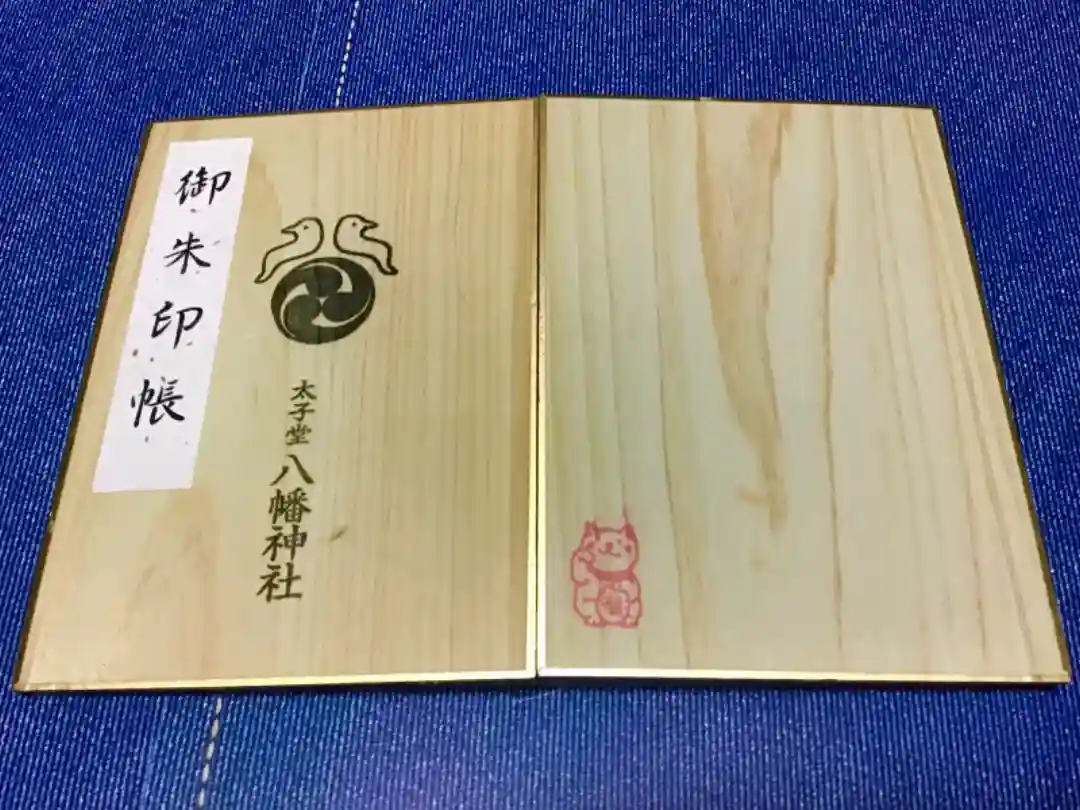 御朱印帳
太子堂
八幡神社